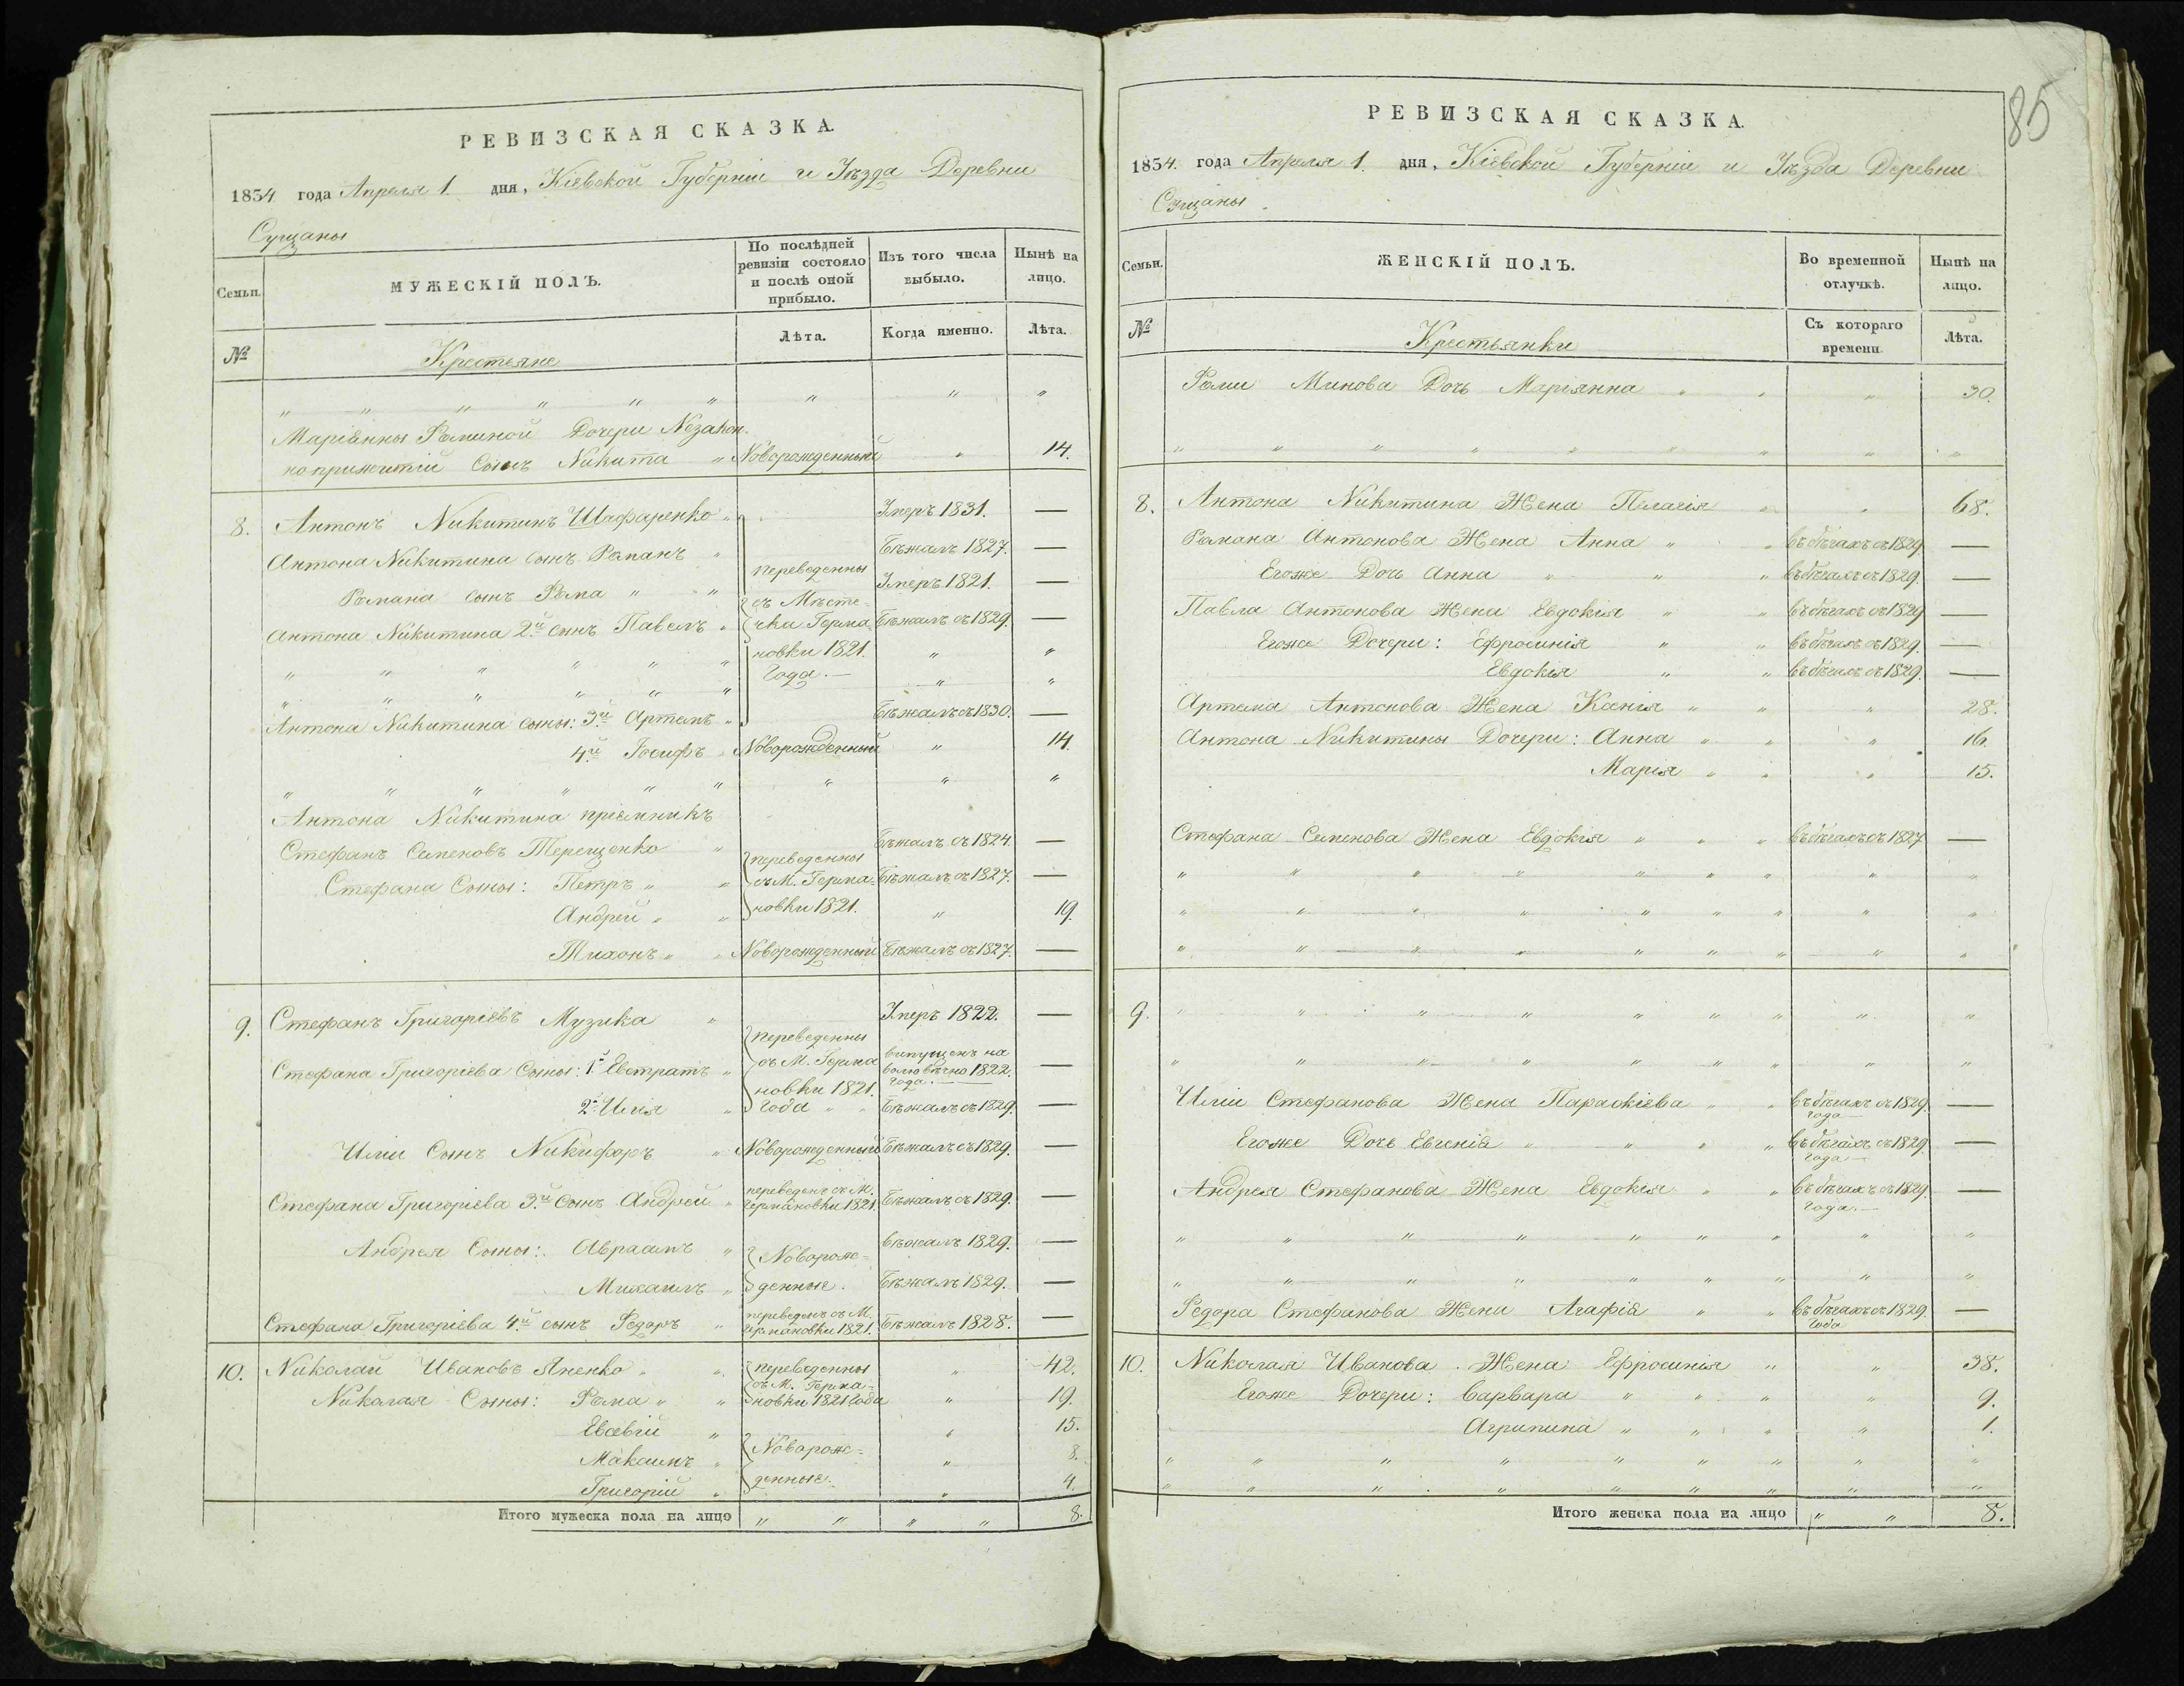 РЕВИЗСКАЯ СКАЗКА.
1834 года Апреля 1. дня, Кіевской Губерніи и Уѣзда Деревни
Сущаны
Семьи.
МУЖЕСКІЙ ПОЛЪ.
По послѣдней ревизіи состояло и послѣ оной прибыло.
Изъ того числа выбыло.
Нынѣ на лицо.
№
Крестьяне
Лѣта.
Когда именно.
Лѣта.
" " " " " " " " "
Маріянны Фоминой Дочери Незакон-
ноприжитій Сынъ Никита " Новорожденный " 14.
8. Антонъ Никитинъ Шафаренко " Умеръ 1831. —
Антона Никитина сынъ Романъ " Бѣжалъ 1827. —
переведенны
Романа сынъ Фома " " Умеръ 1821. —
съ Мѣсте-
Антона Никитина 2й сынъ Павелъ " чки Герма- Бѣжалъ съ 1829. —
" " " " " " новки 1821. " "
" " " " " " Года. — " "
Антона Никитина сыны: 3й Артемъ " Бѣжалъ съ 1830. —
4й Іосифъ " Новорожденный " 14.
" " " " " " " " "
Антона Никитина пріемникъ
Стефанъ Семеновъ Терещенко " Бѣжалъ съ 1824. —
переведенны
Стефана Сыны: Петръ " " съ М. Герма- Бѣжалъ съ 1827. —
Андрей " " новки 1821. " 19.
Тихонъ " " Новорожденный Бѣжалъ съ 1827. —
9. Стефанъ Григоріевъ Музика " Умеръ 1822. —
переведенны
Стефана Григоріева Сыны: 1й Евстратъ " съ М. Герма выпущенъ на волю вѣчно 1822. года. —
новки 1821.
2й Илія " года " " Бѣжалъ съ 1829. —
Иліи Сынъ Никифоръ " Новорожденный Бѣжалъ съ 1829. —
Стефана Григоріева 3й Сынъ Андрей " переведенъ съ М. Германовки 1821. Бѣжалъ съ 1829. —
Андрея Сыны: Авраамъ " Новорож- бѣжалъ 1829. —
Михаилъ " денные. Бѣжалъ 1829. —
Стефана Григоріева 4й сынъ Федоръ " переведенъ съ М. Германовки 1821. Бѣжалъ 1828. —
10. Николай Ивановъ Яненко " " переведенны " 42.
съ М. Герма-
Николая Сыны: Фома " " новки 1821 года " 19.
Евсевій " " 15.
Максимъ " Новорож- " 8.
Григорій " денные. " 4.
Итого мужеска пола на лицо " " " " 8.
85
РЕВИЗСКАЯ СКАЗКА.
1834. года Апреля 1. дня, Кіевской Губерніи и Уѣзда Деревни
Сущаны.
Семьи.
ЖЕНСКІЙ ПОЛЪ.
Во временной отлучкѣ.
Нынѣ на лицо.
№
Крестьянки
Съ котораго времени
Лѣта.
Фомы Минова Дочь Маріянна " " " 30.
" " " " " " " " "
8. Антона Никитина Жена Пелагія " " 68.
Романа Антонова Жена Анна " " въ бѣгахъ съ 1829. —
Егоже Дочь Анна " " " въ бѣгахъ съ 1829. —
Павла Антонова Жена Евдокія " " въ бѣгахъ съ 1829 —
Егоже Дочери: Ефросинія " " въ бѣгахъ съ 1829. —
Евдокія " " въ бѣгахъ съ 1829. —
Артема Антонова Жена Ксенія " " " 28.
Антона Никитины Дочери: Анна " " " 16.
Марія " " " 15.
Стефана Семенова Жена Евдокія " " " въ бѣгахъ съ 1827 —
" " " " " " " " "
" " " " " " " " "
" " " " " " " " "
9. " " " " " " " " "
" " " " " " " " "
Иліи Стефанова Жена Параскіева " " въ бѣгахъ съ 1829. года —
Егоже Дочь Евгенія " " " " въ бѣгахъ съ 1829. года —
Андрея Стефанова Жена Евдокія " " въ бѣгахъ съ 1829 года. —
" " " " " " " " "
" " " " " " " " "
Федора Стефанова Жена Агафія " " въ бѣгахъ съ 1829. года —
10. Николая Иванова Жена Ефросинія " " 38.
Егоже Дочери: Варвара " " " " 9.
Агрипина " " " " 1.
" " " " " " " " "
" " " " " " " " "
Итого женска пола на лицо " " 8.